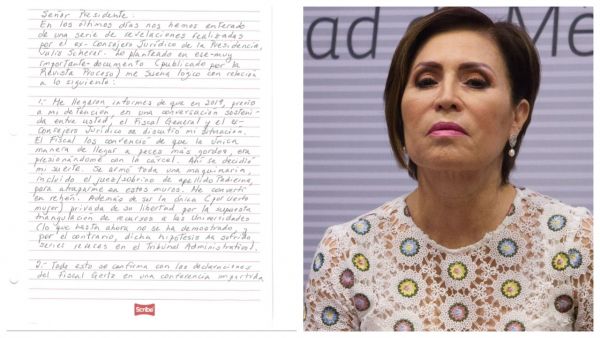 Señor Presidente:
En los últimos días nos hemos enterado
de una serie de revelaciones realizadas
por el ex-Consejero Jurídico de la Presidencia,
Julio Scherer. Lo planteado en ese muy
importante documento (publicado por la
Revista Proceso) me suena lógico con relación
a lo siguiente:
1.- Me llegaron informes de que en 2019, previo
a mi detención, en una conversación sosteni-
da entre usted, el Fiscal General y el ex-
Consejero Jurídico se discutió mi situación.
El Fiscal los convenció de que la única
manera de llegar a peces más gordos, era
presionándome con la cárcel. Ahí se decidió
mi suerte. Se armó toda una maquinaria,
incluido el juez/sobrino de apellido Padierna,
para atraparme en estos muros. Me convertí
en rehén. Además de ser la única (por cierto
mujer) privada de su libertad por la supuesta
triangulación de recursos a las Universidades
(lo que hasta ahora no se ha demostrado, y
por el contrario, dicha hipótesis ha sufrido
serios reveses en el Tribunal Administrativo).
2.- Todo esto se confirma con las declaraciones
del Fiscal Gertz en una conferencia impartida
Scribe
ad de Mé